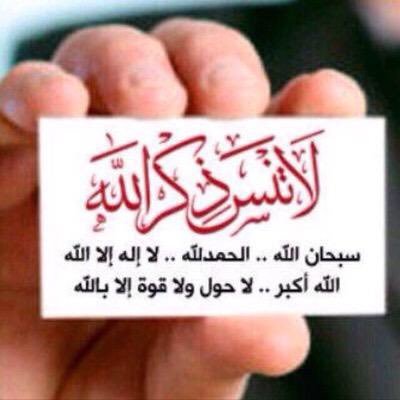 لَا تَنْسَ ذِكْرَ اللَّه
سبحان الله .. الحمدلله .. لا إله إلا الله
الله أكبر .. لا حول ولا قوة إلا بالله